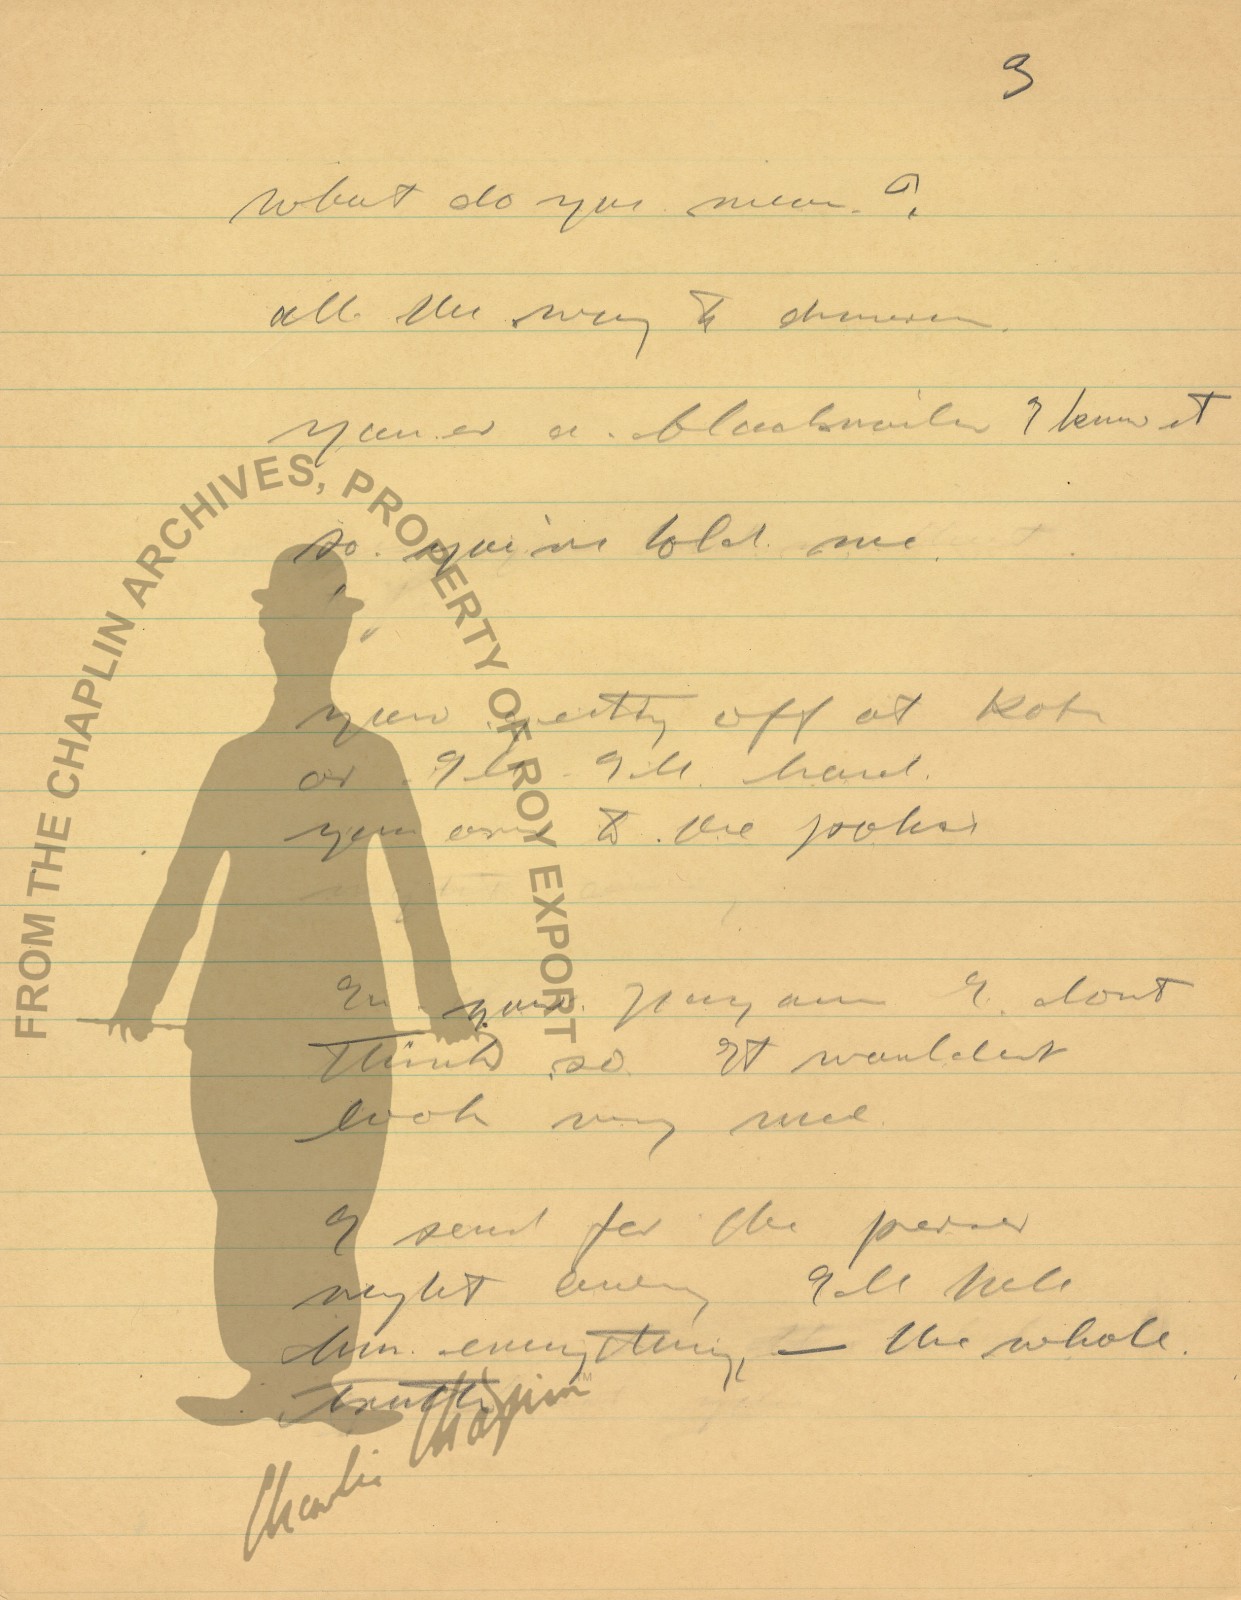 3
what do you mean?
all the way to
you're a blackmailer I know it
so you've told me.
your getting off at Kobe
or I'll I'll hand
you over to the police
In your pyjamas I dont
think so It wouldent
look very nice
I send for the purser
right away I'll tell
him everything, — the whole
truth
FROM THE CHAPLIN ARCHIVES, PROPERTY OF ROY EXPORT
Charlie Chaplin™